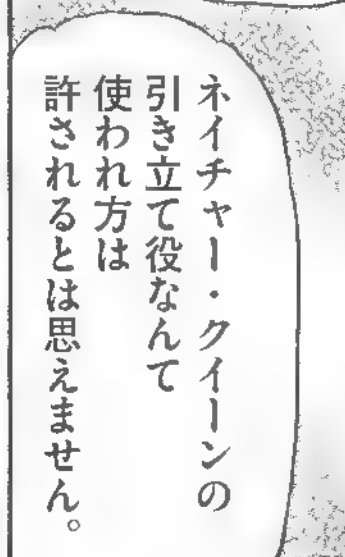 ネイチャー・クイーンの
引き立て役なんて
使われ方は
許されるとは思えません。